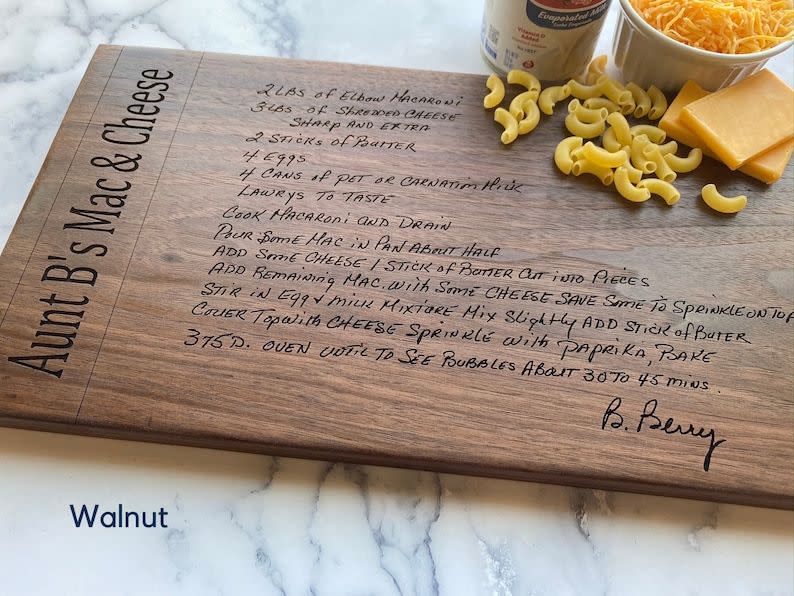 Evaporated Milk
Vitamin D
Added
Aunt B's Mac & Cheese
2 LBS of Elbow Macaroni
3 LBS of Shredded Cheese
Sharp and Extra
2 Sticks of Butter
4 Eggs
4 Cans of Pet or Carnation Milk
Lawrys to Taste
Cook Macaroni and Drain
Pour Some Mac in Pan About Half
Add Some Cheese 1 Stick of Butter Cut into Pieces
Add Remaining Mac. with Some Cheese Save Some To Sprinkle on Top
Stir in Egg & Milk Mixture Mix Slightly Add Stick of Buter
Cover Top with Cheese Sprinkle with Paprika, Bake
375 D. oven until To See Bubbles About 30 To 45 mins.
B. Berry
Walnut